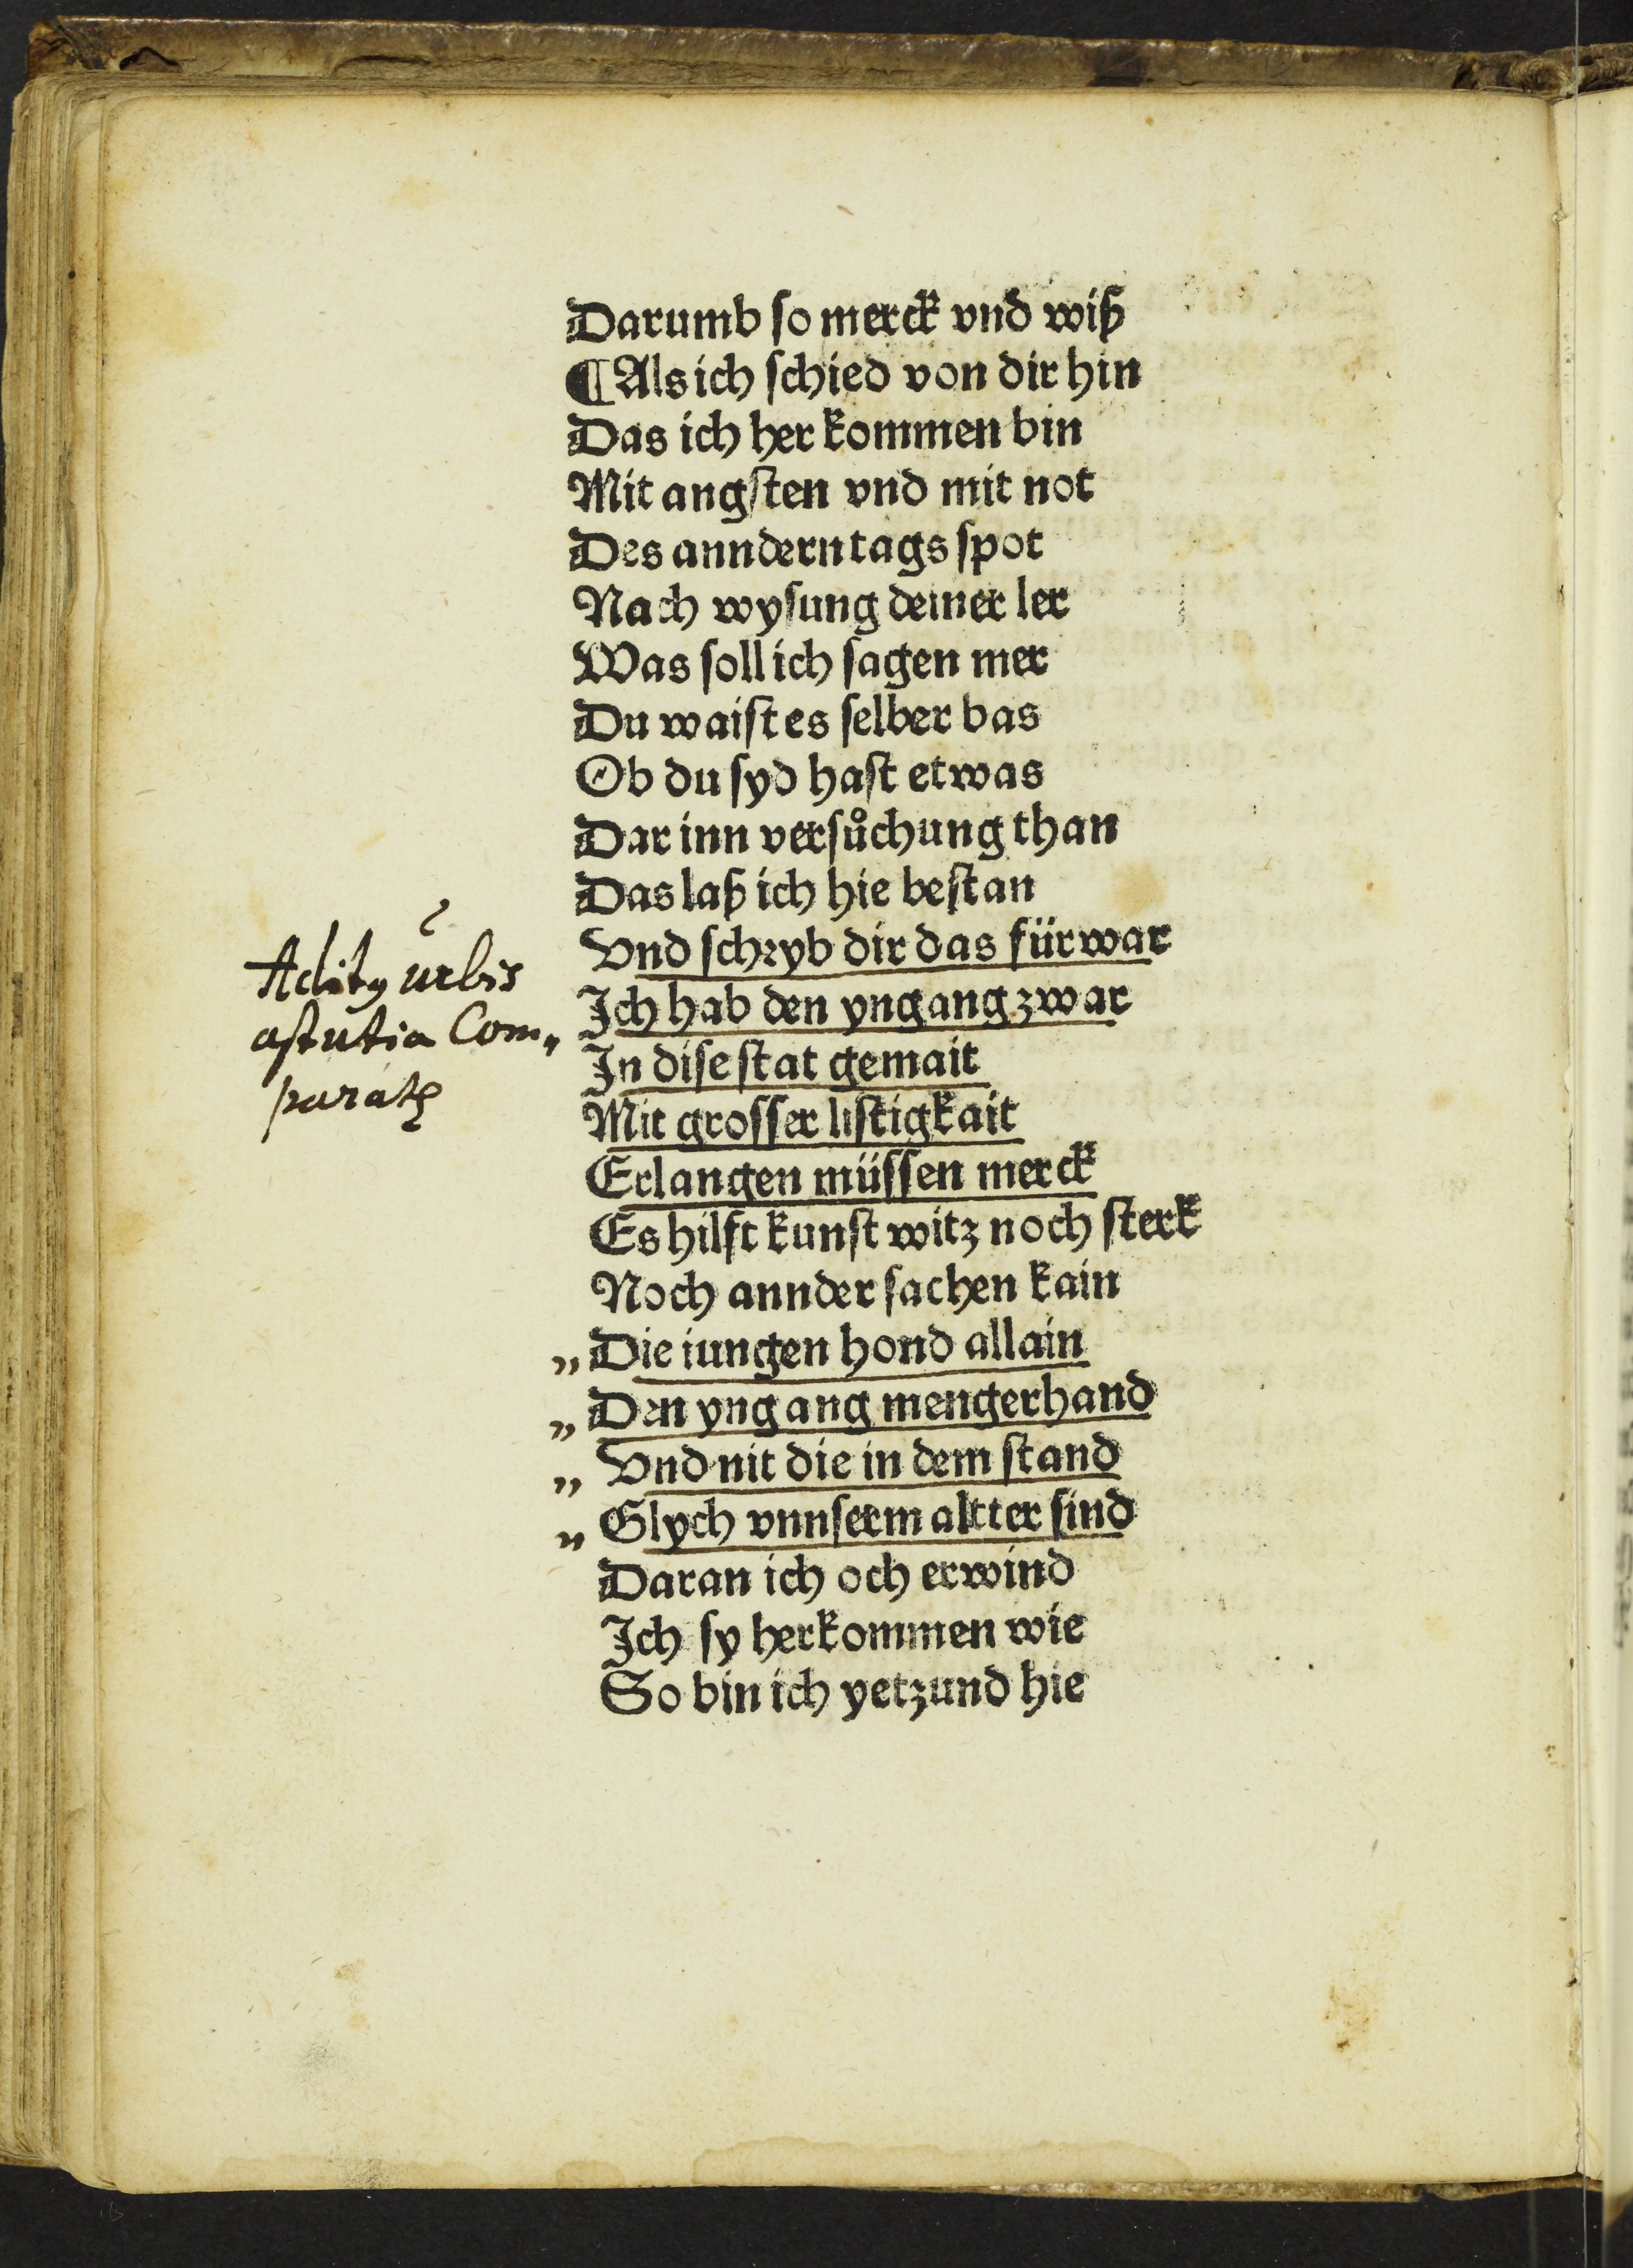 Darumb so merck vnd wiß
¶Als ich schied von dir hin
Das ich her kommen bin
Mit angsten vnd mit not
Des anndern tags spot
Nach wysung deiner ler
Was soll ich sagen mer
Du waist es selber bas
Ob du syd hast etwas
Dar inn versůchung than
Das laß ich hie bestan
Vnd schryb dir das fürwar
Ich hab den yngang zwar
In dise stat gemait
Mit grosser listigkait
Erlangen müssen merck
Es hilft kunst witz noch sterk
Noch annder sachen kain
„Die iungen hond allain
„Den yngang mengerhand
„Vnd nit die in dem stand
„Glych vnnserm altter sind
Daran ich och erwind
Ich sy herkommen wie
So bin ich yetzund hie
urbis
astutia Com„